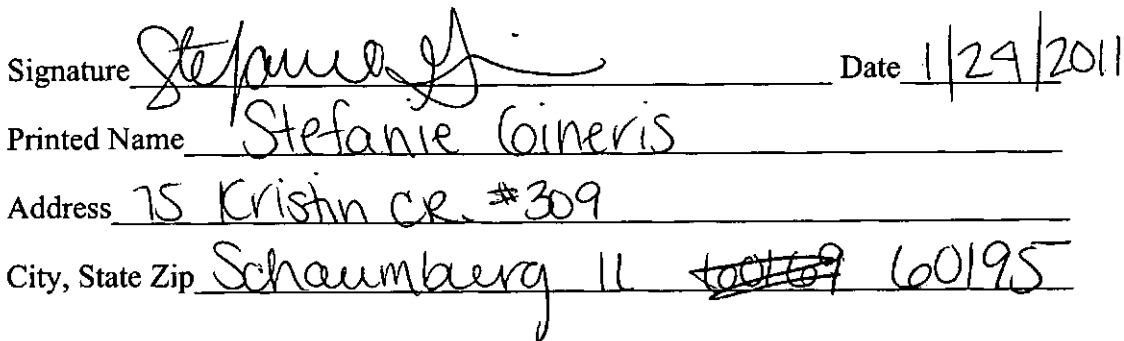 Signature Stefanie Gi Date 1/24/2011
Printed Name Stefanie Gineris
Address 75 Kristin CR. #309
City, State Zip Schaumburg IL 60169 60195